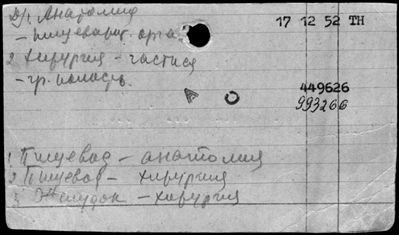 Д/1 Анатомия
17 12 52 TH
– пищеварит. орга
2 Хирургия – частная
– гр. полость
449626
993266
1 Пищевод – анатомия
2 Пищевод – хирургия
3 Желудок – хирургия